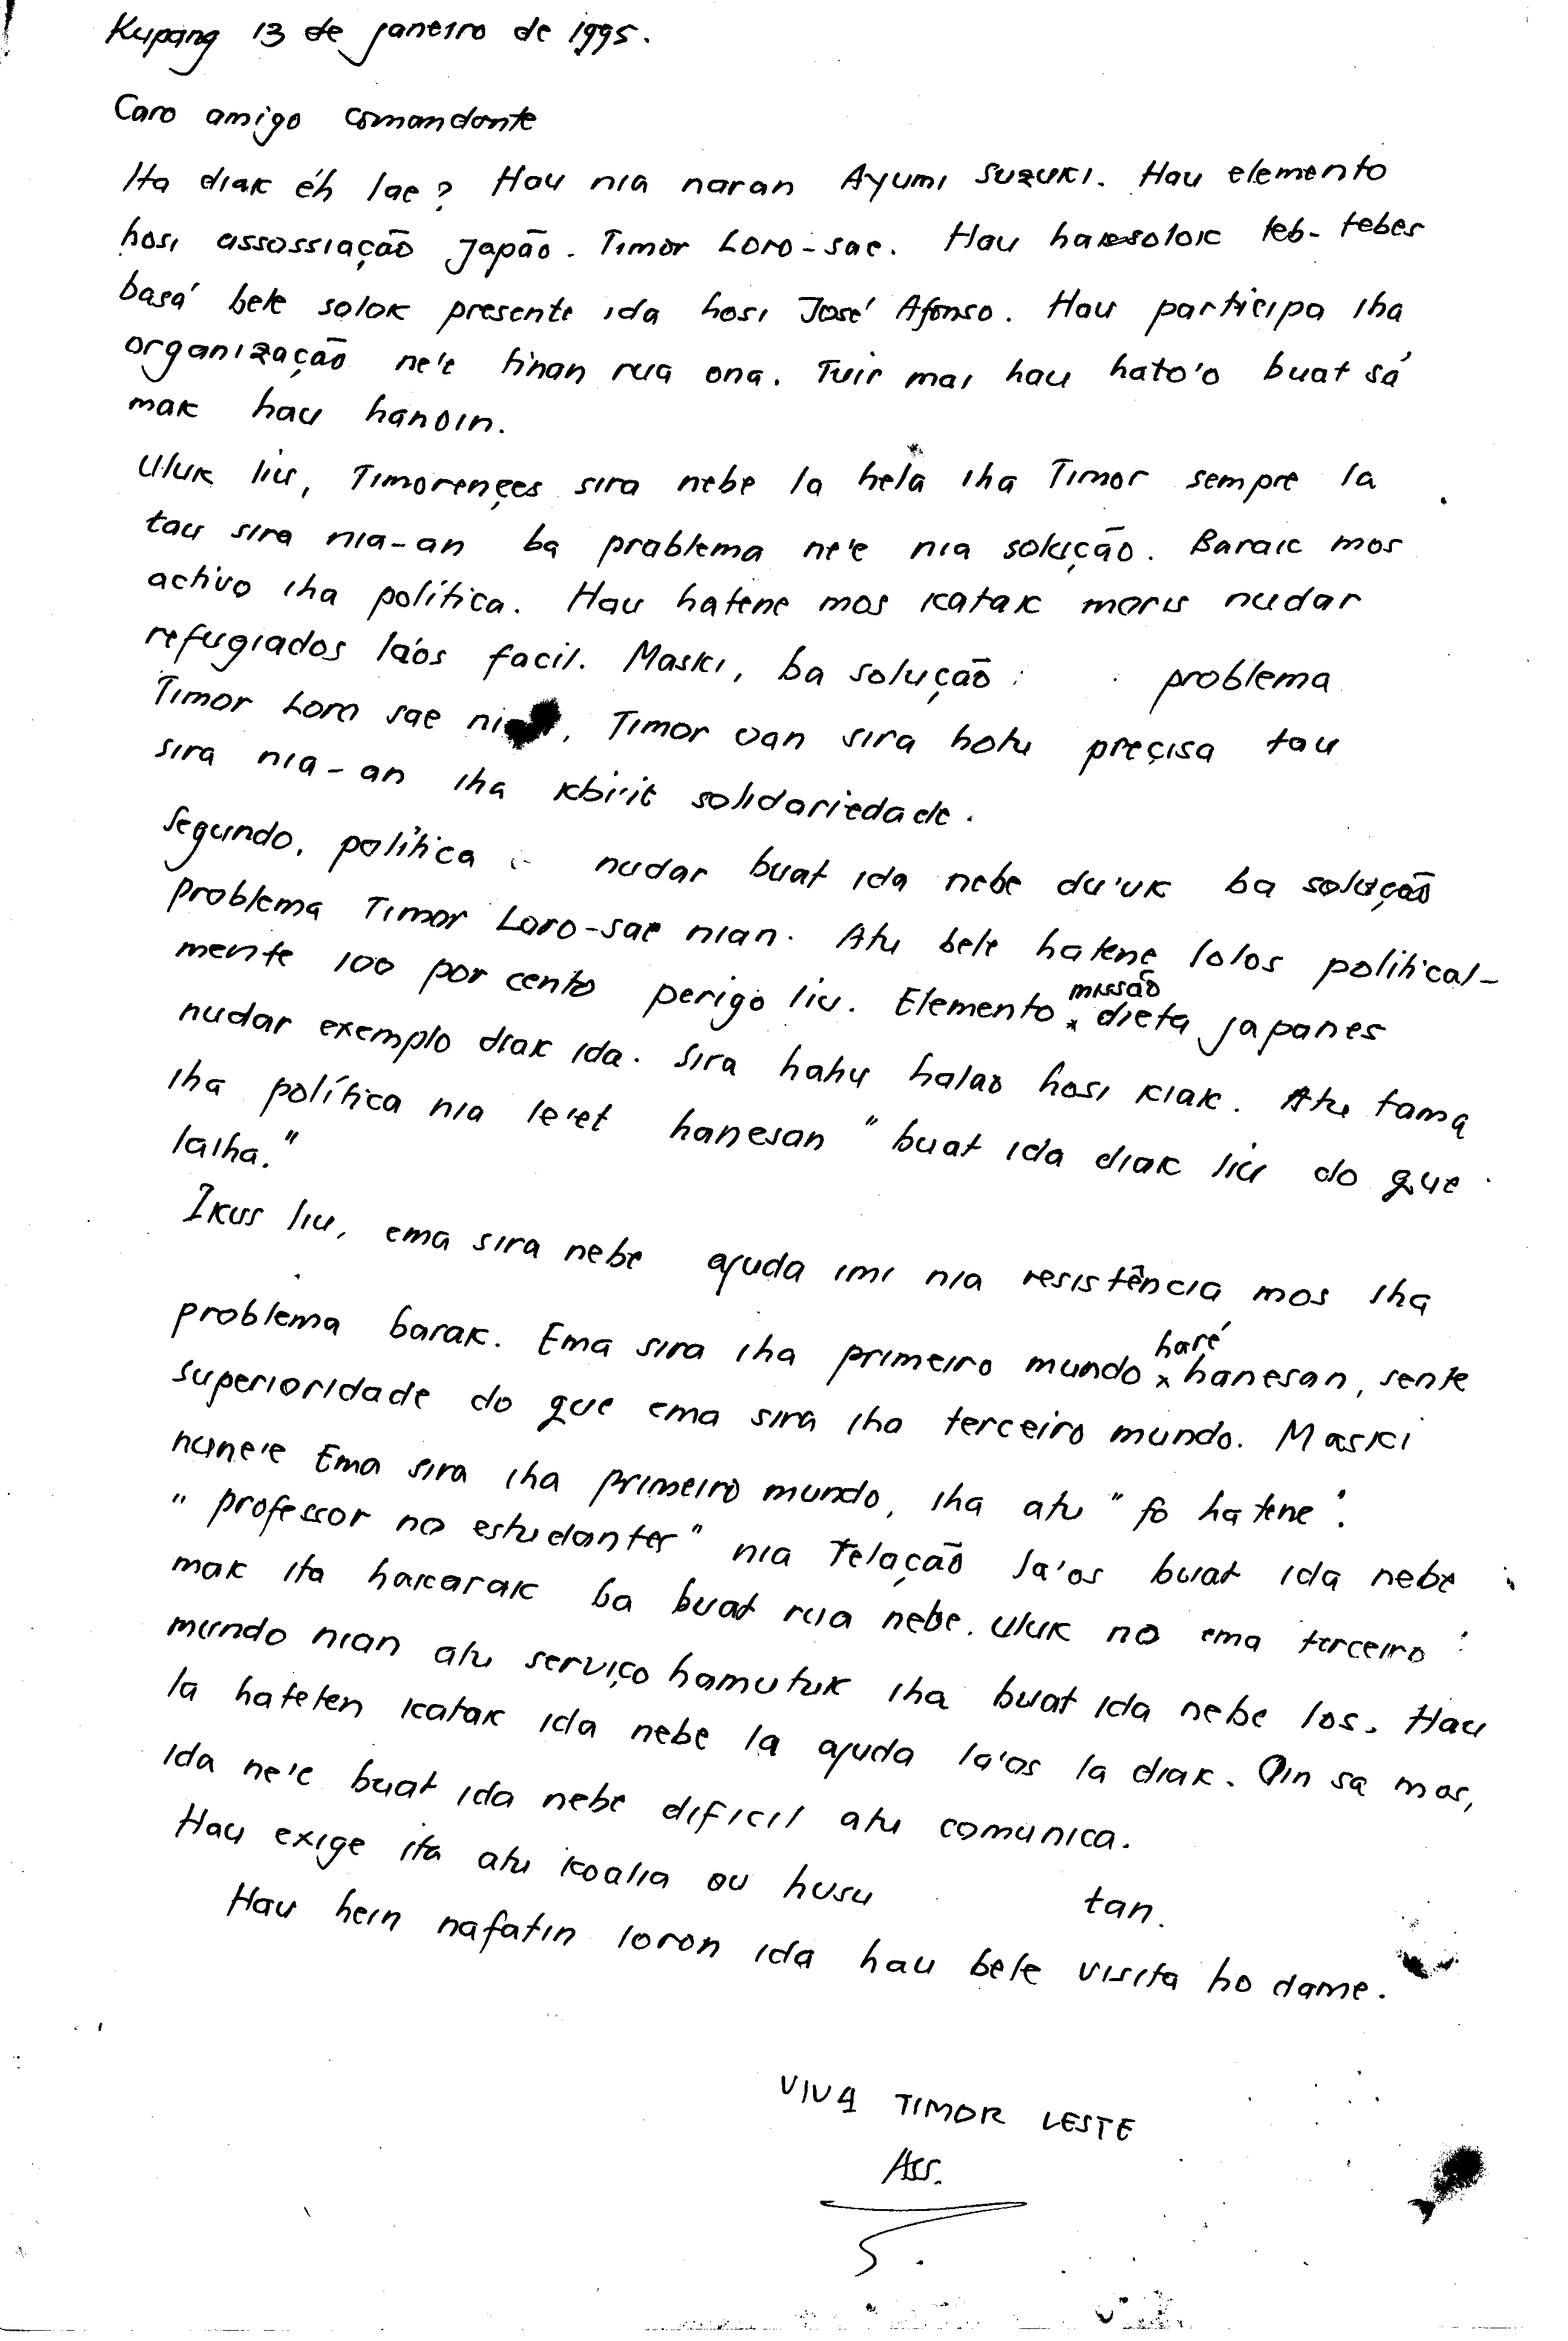 Kupang 13 de janeiro de 1995.
Caro amigo comandante
Ita diak éh lae? Hau nia naran Ayumi Suzuki. Hau elemento
hosi assossiação Japão - Timor Loro-sae. Hau haksolok teb-tebes
basá bele solok presente ida hosi José Afonso. Hau participa iha
organização ne'e tinan rua ona. Tuir mai hau hato'o buat sá
mak hau hanoin.
Uluk liu, Timorençes sira nebe la hela iha Timor sempre la
tau sira nia-an ba problema ne'e nia solução. Barak mos
activo iha política. Hau hatene mos katak moris nudar
refugiados la'os facil. Maski, ba solução problema
Timor Loro sae , Timor oan sira hotu preçisa tau
sira nia-an iha kbi'it solidariedade.
Segundo, política nudar buat ida nebe du'uk ba solução
problema Timor Loro-sae nian. Atu bele hatene lolos political-
mente 100 por cento perigo liu. Elemento missão dieta japanes
nudar exemplo diak ida. Sira hahu halao hosi kiak. Atu tama
iha política nia le'et hanesan "buat ida diak liu do que
laiha."
Ikus liu, ema sira nebe ajuda imi nia resistência mos iha
problema barak. Ema sira iha primeiro mundo haré hanesan, sente
superioridade do que ema sira iha terceiro mundo. Maski
nune'e Ema sira iha primeiro mundo, iha atu "fo hatene".
"professor no estudantes" nia relação la'os buat ida nebe
mak ita hakarak ba buat rua nebe. Uluk no ema terceiro
mundo nian atu serviço hamutuk iha buat ida nebe los. Hau
la hateten katak ida nebe la ajuda la'os la diak. Oin sa mos,
ida ne'e buat ida nebe dificil atu comunica.
Hau exige ita atu koalia ou husu tan.
Hau hein nafatin loron ida hau bele visita ho dame.
VIVA TIMOR LESTE
Ass.